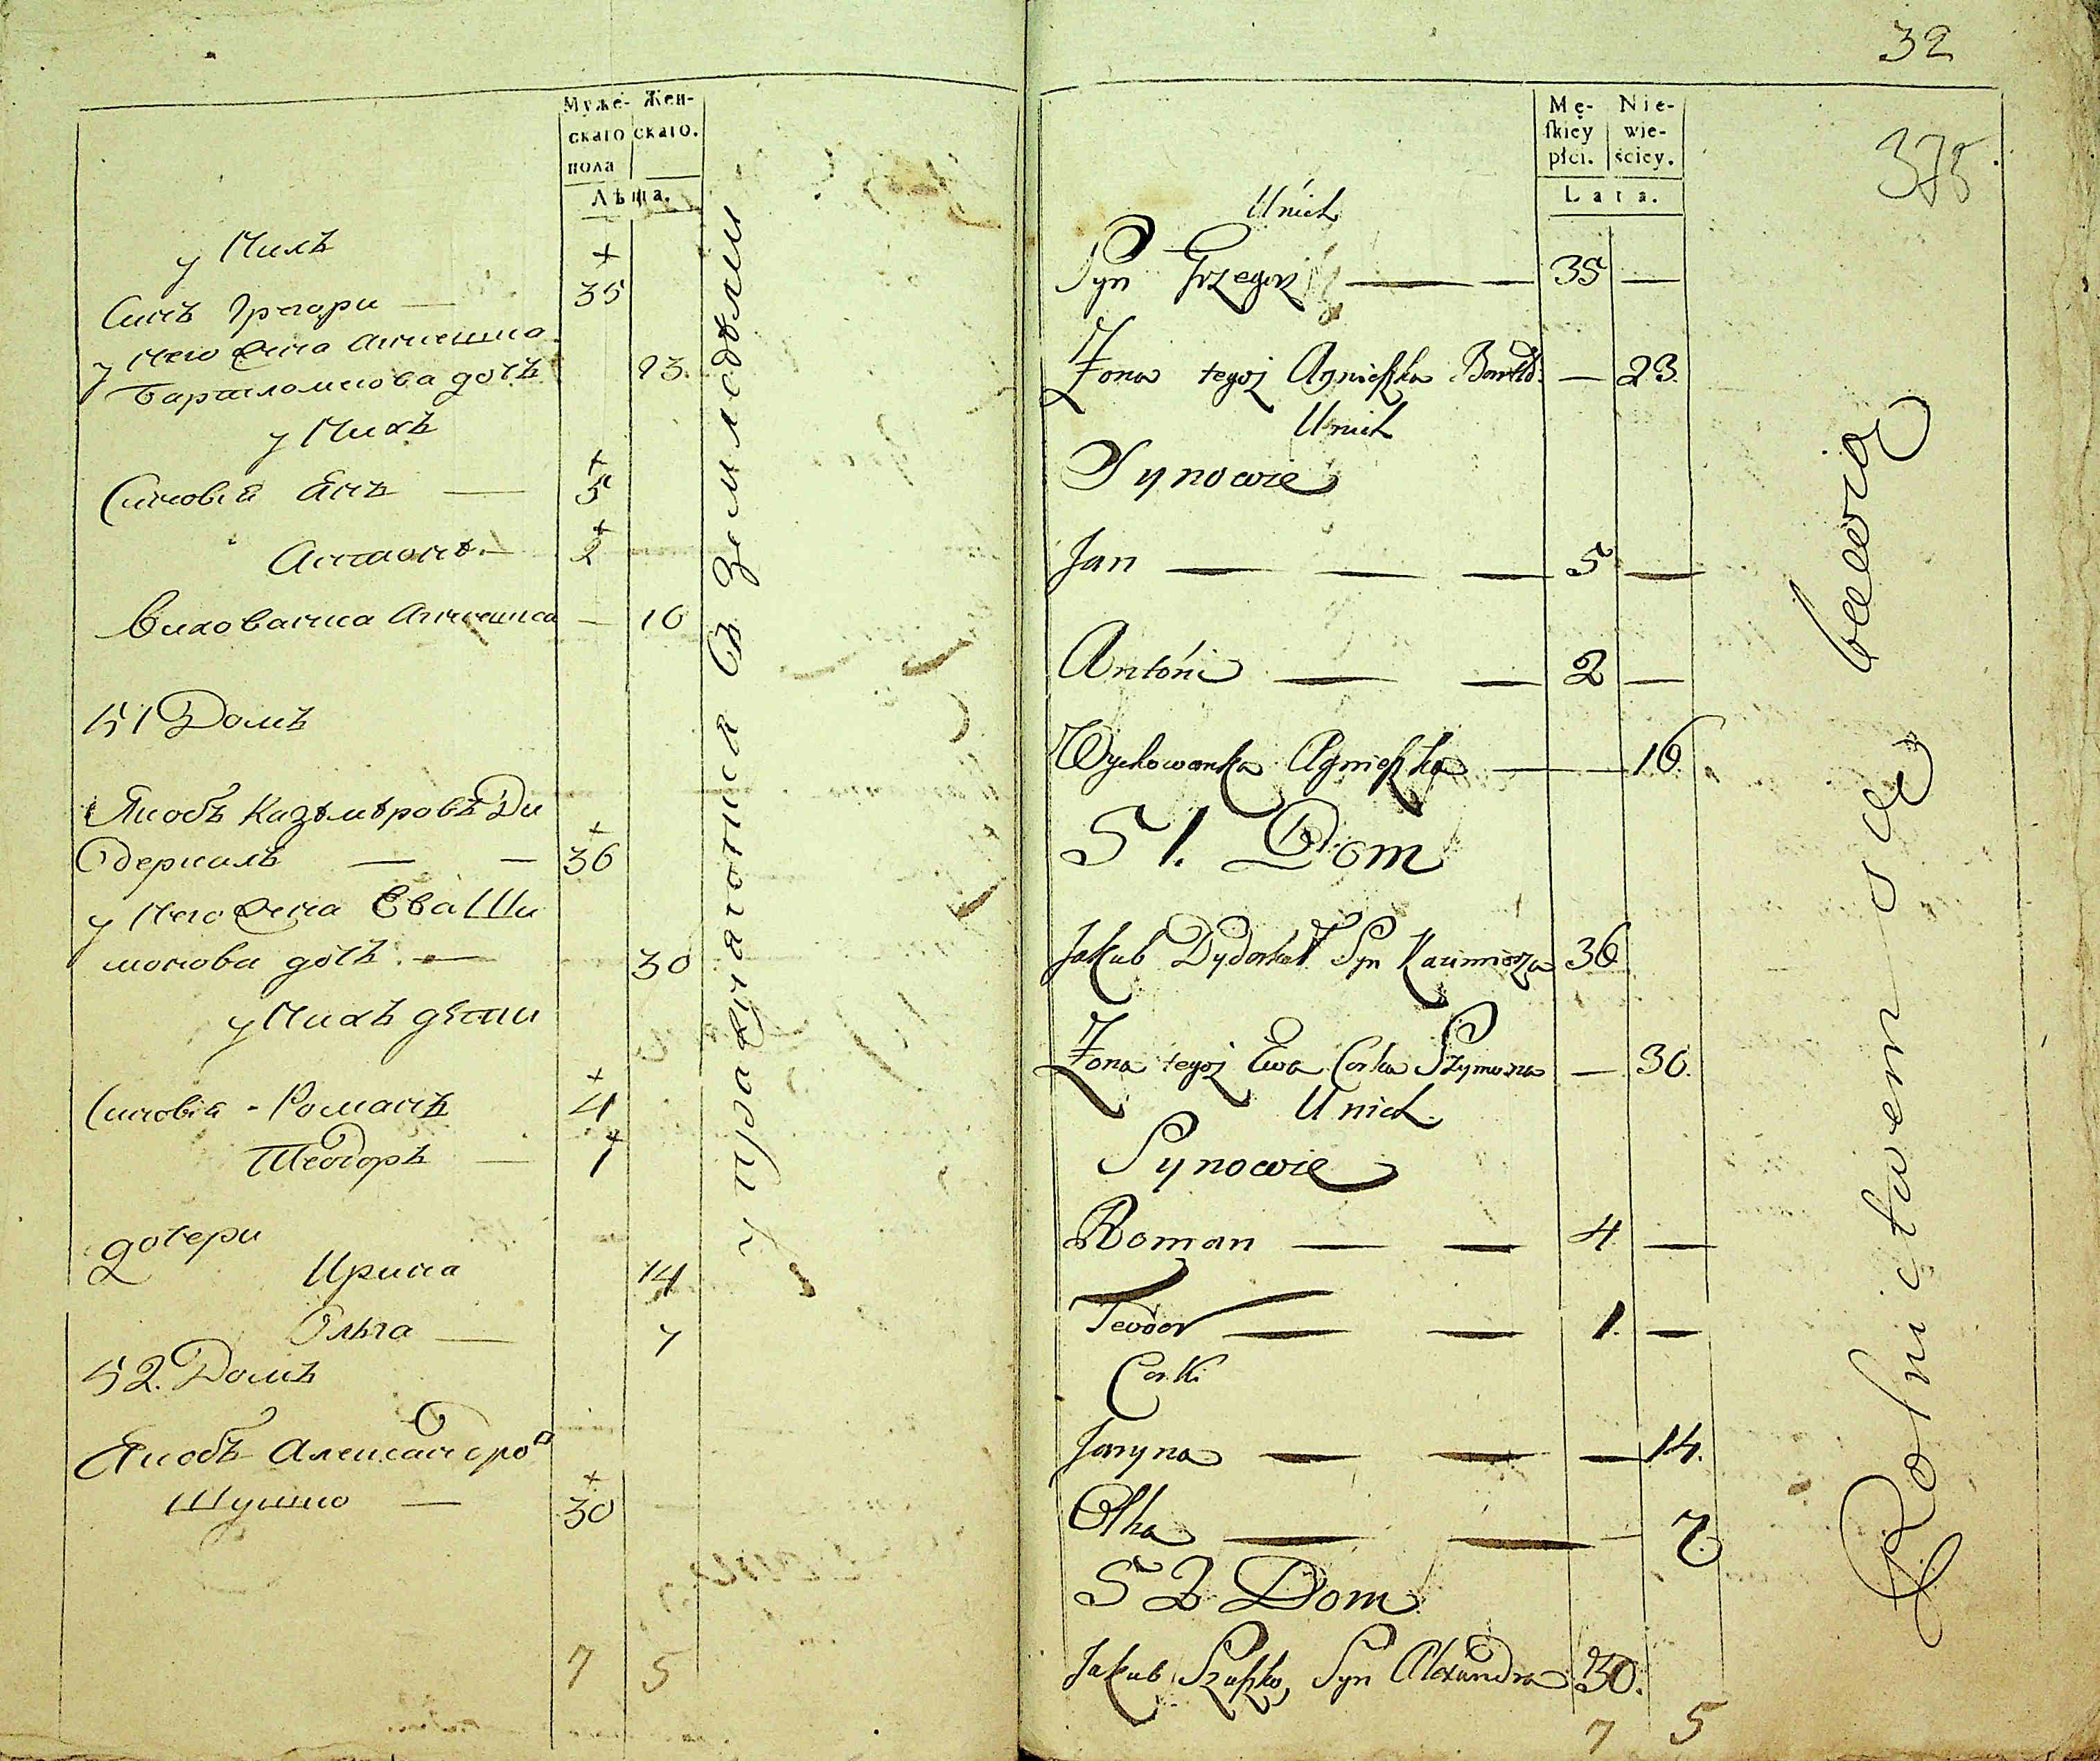 Муже- Жен-
скаго скаго.
пола
Лѣта.
у Нихъ
Синъ Грегори — 35
у Него Жена Агнешка
Бартломеова дочъ 23.
у Нихъ
Синовія Янъ — 5
Антонъ — 2
Вихованка Агнешка — 16
51 Домъ
Якобъ Казѣмѣровъ Ди
деркалъ — — 36
у Него Жена Ева Ши
монова дочъ. — 30
у Нихъ дѣти
Синовія - Романъ 4
Теодоръ — 1
дочери
Ирина 14
Ольга — 7
52. Домъ
Якобъ Александро
Шушко — 30
7 5
упражняются въ земледѣли
32
375.
Mę- Nie-
ſkiey wie-
płci. ściey.
Lata.
U nich
Syn Grzegorz — — 35 —
Żona tegoż Agnieszka Bartło: — 23.
U nich
Synowie
Jan — — — 5 —
Antóni — — 2 —
Wychowanka Agnieszka — — 16
51. Dom
Jakub Dyderkał Syn Kazimierza 36
Żona tegoż Ewa Corka Szymona — 30.
U nich
Synowie
Roman — — 4 —
Teodor — — 1. —
Corki
Jaryna — — — 14.
Olha — — — 7
52 Dom
Jakub Szuszko, Syn Alexandra 30.
7 5
Rolnictwem się bawią